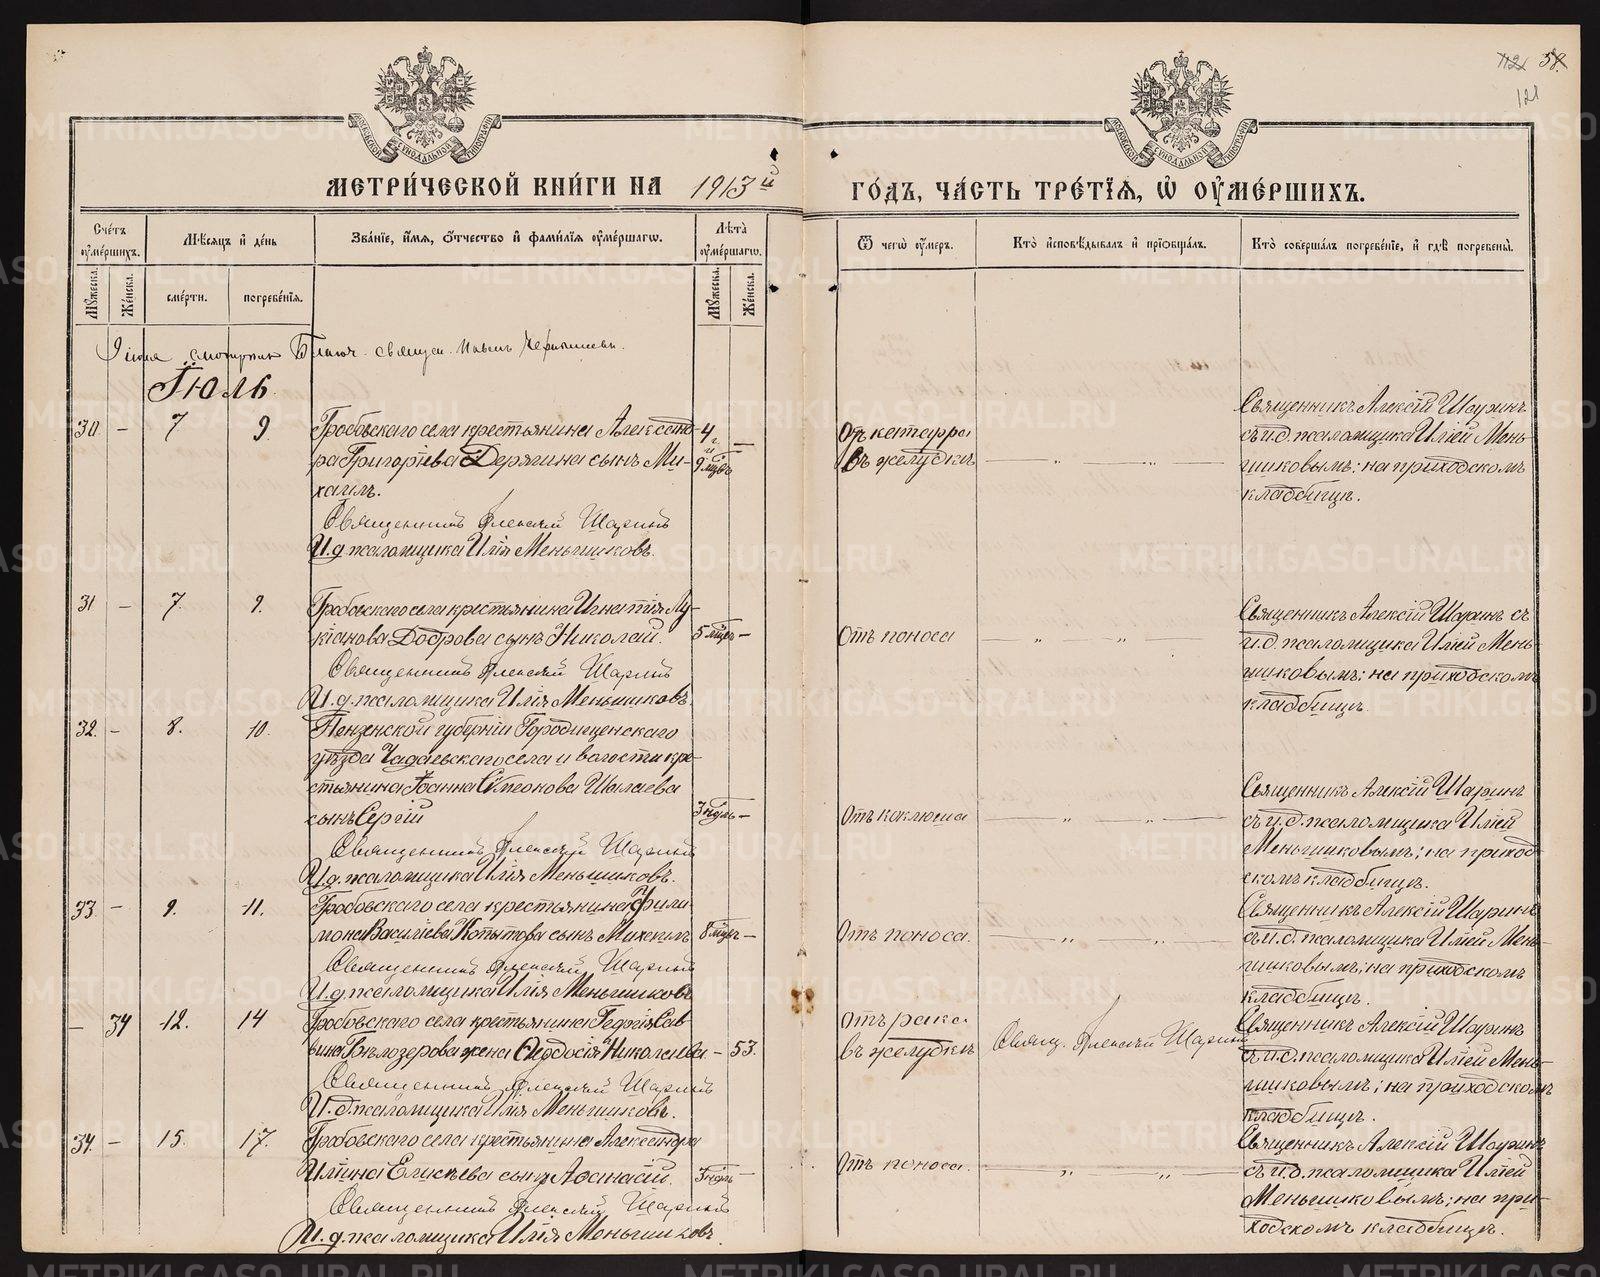 112 58.
121
МОСКОВСКОЙ СѴНОДАЛЬНОЙ ТИПОГРАФІИ
МОСКОВСКОЙ СѴНОДАЛЬНОЙ ТИПОГРАФІИ
МЕТРИ́ЧЕСКОЙ КНИ́ГИ НА 1913й
ГО́ДЪ, ЧА́СТЬ ТРЕ́ТІѦ, Ѡ҆ ОУ҆МЕ́РШИХЪ.
Сче́тъ оу҆ме́ршихъ.
Мꙋ́жеска.
Же́нска.
Мѣ́сяцъ и҆ де́нь
сме́рти.
погребе́нїѧ.
Зва́нїе, и҆́мѧ, ѻ҆́тчество и҆ фами́лїѧ оу҆ме́ршагѡ.
Лѣ́та оу҆ме́ршагѡ.
Мꙋ́жеска.
Же́нска.
Ѿ чегѡ̀ оу҆́меръ.
Кто̀ и҆сповѣ́дывалъ и҆ прїѡбща́лъ.
Кто̀ соверша́лъ погребе́нїе, и҆ гдѣ̀ погребены̀.
Іюня смотрѣлъ Благоч. священ. Павелъ
Іюль
30 – 7 9.
Гробовскаго села крестьянина Александ-
ра Григоріева Дерягина сынъ Ми-
хаилъ.
Священникъ Алексій Шаринъ
И.д. псаломщика Илія Меньшиковъ.
4 г. и 9 мцвъ –
Отъ катарра
въ желудкѣ
Священникъ Алексій Шаринъ
съ и.д. псаломщика Иліей Мень-
шиковымъ: на приходскомъ
кладбищѣ.
31 – 7. 9.
Гробовскаго села крестьянина Игнатія Лу-
кіанова Доброва сынъ Николай.
Священникъ Алексій Шаринъ
И.д. псаломщика Илія Меньшиковъ.
5 мцевъ –
Отъ поноса
Священникъ Алексій Шаринъ съ
и.д. псаломщика Иліей Мень-
шиковымъ; на приходскомъ
кладбищѣ.
32. – 8. 10.
Пензенской губерніи Городищенскаго
уѣзда Чадаевскаго села и волости кре-
стьянина Іоанна Сѵмеонова Шалаева
сынъ Сергій
Священникъ Алексій Шаринъ
И.д. псаломщика Илія Меньшиковъ.
3 нѣдль –
Отъ коклюша
Священникъ Алексій Шаринъ
съ и.д. псаломщика Иліей
Меньшиковымъ; на приход-
скомъ кладбищѣ.
33 – 9. 11.
Гробовскаго села крестьянина Фили-
мона Василіева Копытова сынъ Михаилъ
Священникъ Алексій Шаринъ
И.д. псаломщика Илія Меньшиковъ
8 мцевъ –
Отъ поноса.
Священникъ Алексій Шаринъ
съ и.д. псаломщика Иліей Мень-
шиковымъ; на приходскомъ
кладбищѣ.
– 34 12. 14
Гробовскаго села крестьянина Георгія Сав-
вина Бѣлозерова жена Ѳеодосія Николаева
Священникъ Алексій Шаринъ
И.д. псаломщика Илія Меньшиковъ.
– 53.
Отъ рака
въ желудкѣ
Свящ. Алексій Шаринъ
Священникъ Алексій Шаринъ
съ и.д. псаломщика Иліей Мень-
шиковымъ; на приходскомъ
кладбищѣ.
34. – 15. 17.
Гробовскаго села крестьянина Александра
Иліина Елисѣева сынъ Аѳанасій.
Священникъ Алексій Шаринъ
И.д. псаломщика Илія Меньшиковъ.
3 нѣдль –
Отъ поноса.
Священникъ Алексій Шаринъ
съ и.д. псаломщика Иліей
Меньшиковымъ; на при-
ходскомъ кладбищѣ.
METRIKI.GASO-URAL.RU